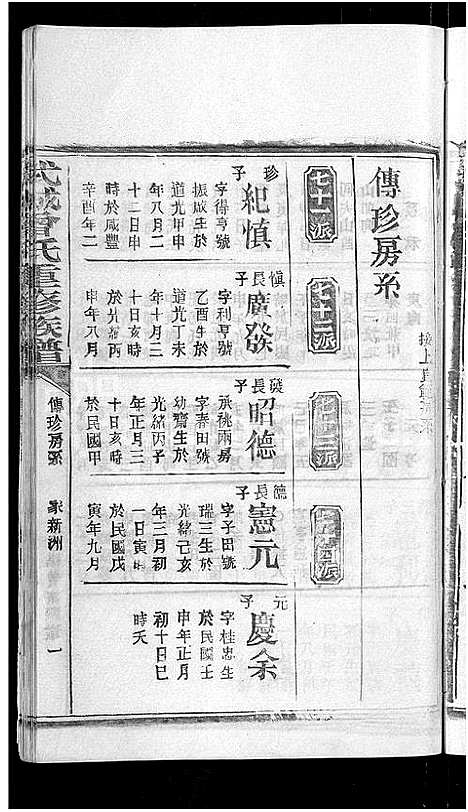 傳珍房系
七十一派
七十二派
七十三派
珍子
紀慎
字得亨號
振成生於
道光甲申
年八月二
十二日申
時於咸豐
辛酉年二
慎長子
廣發
字利亨號
乙酉生於
道光丁未
年十月三
十日亥時
於光緒丙
申年八月
發長子
昭德
承桃兩房
字春田號
幼齋生於
光緒丙子
年正月三
十日亥時
於民國甲
德長子
憲元
字子田號
瑞三生於
光緒己亥
年三月初
一日寅時
於民國戊
寅年九月
元子
慶余
字桂忠生
於民國壬
申年正月
初十日巳
時夭
武城曾氏重修族譜
傳珍房系
家新洲
一